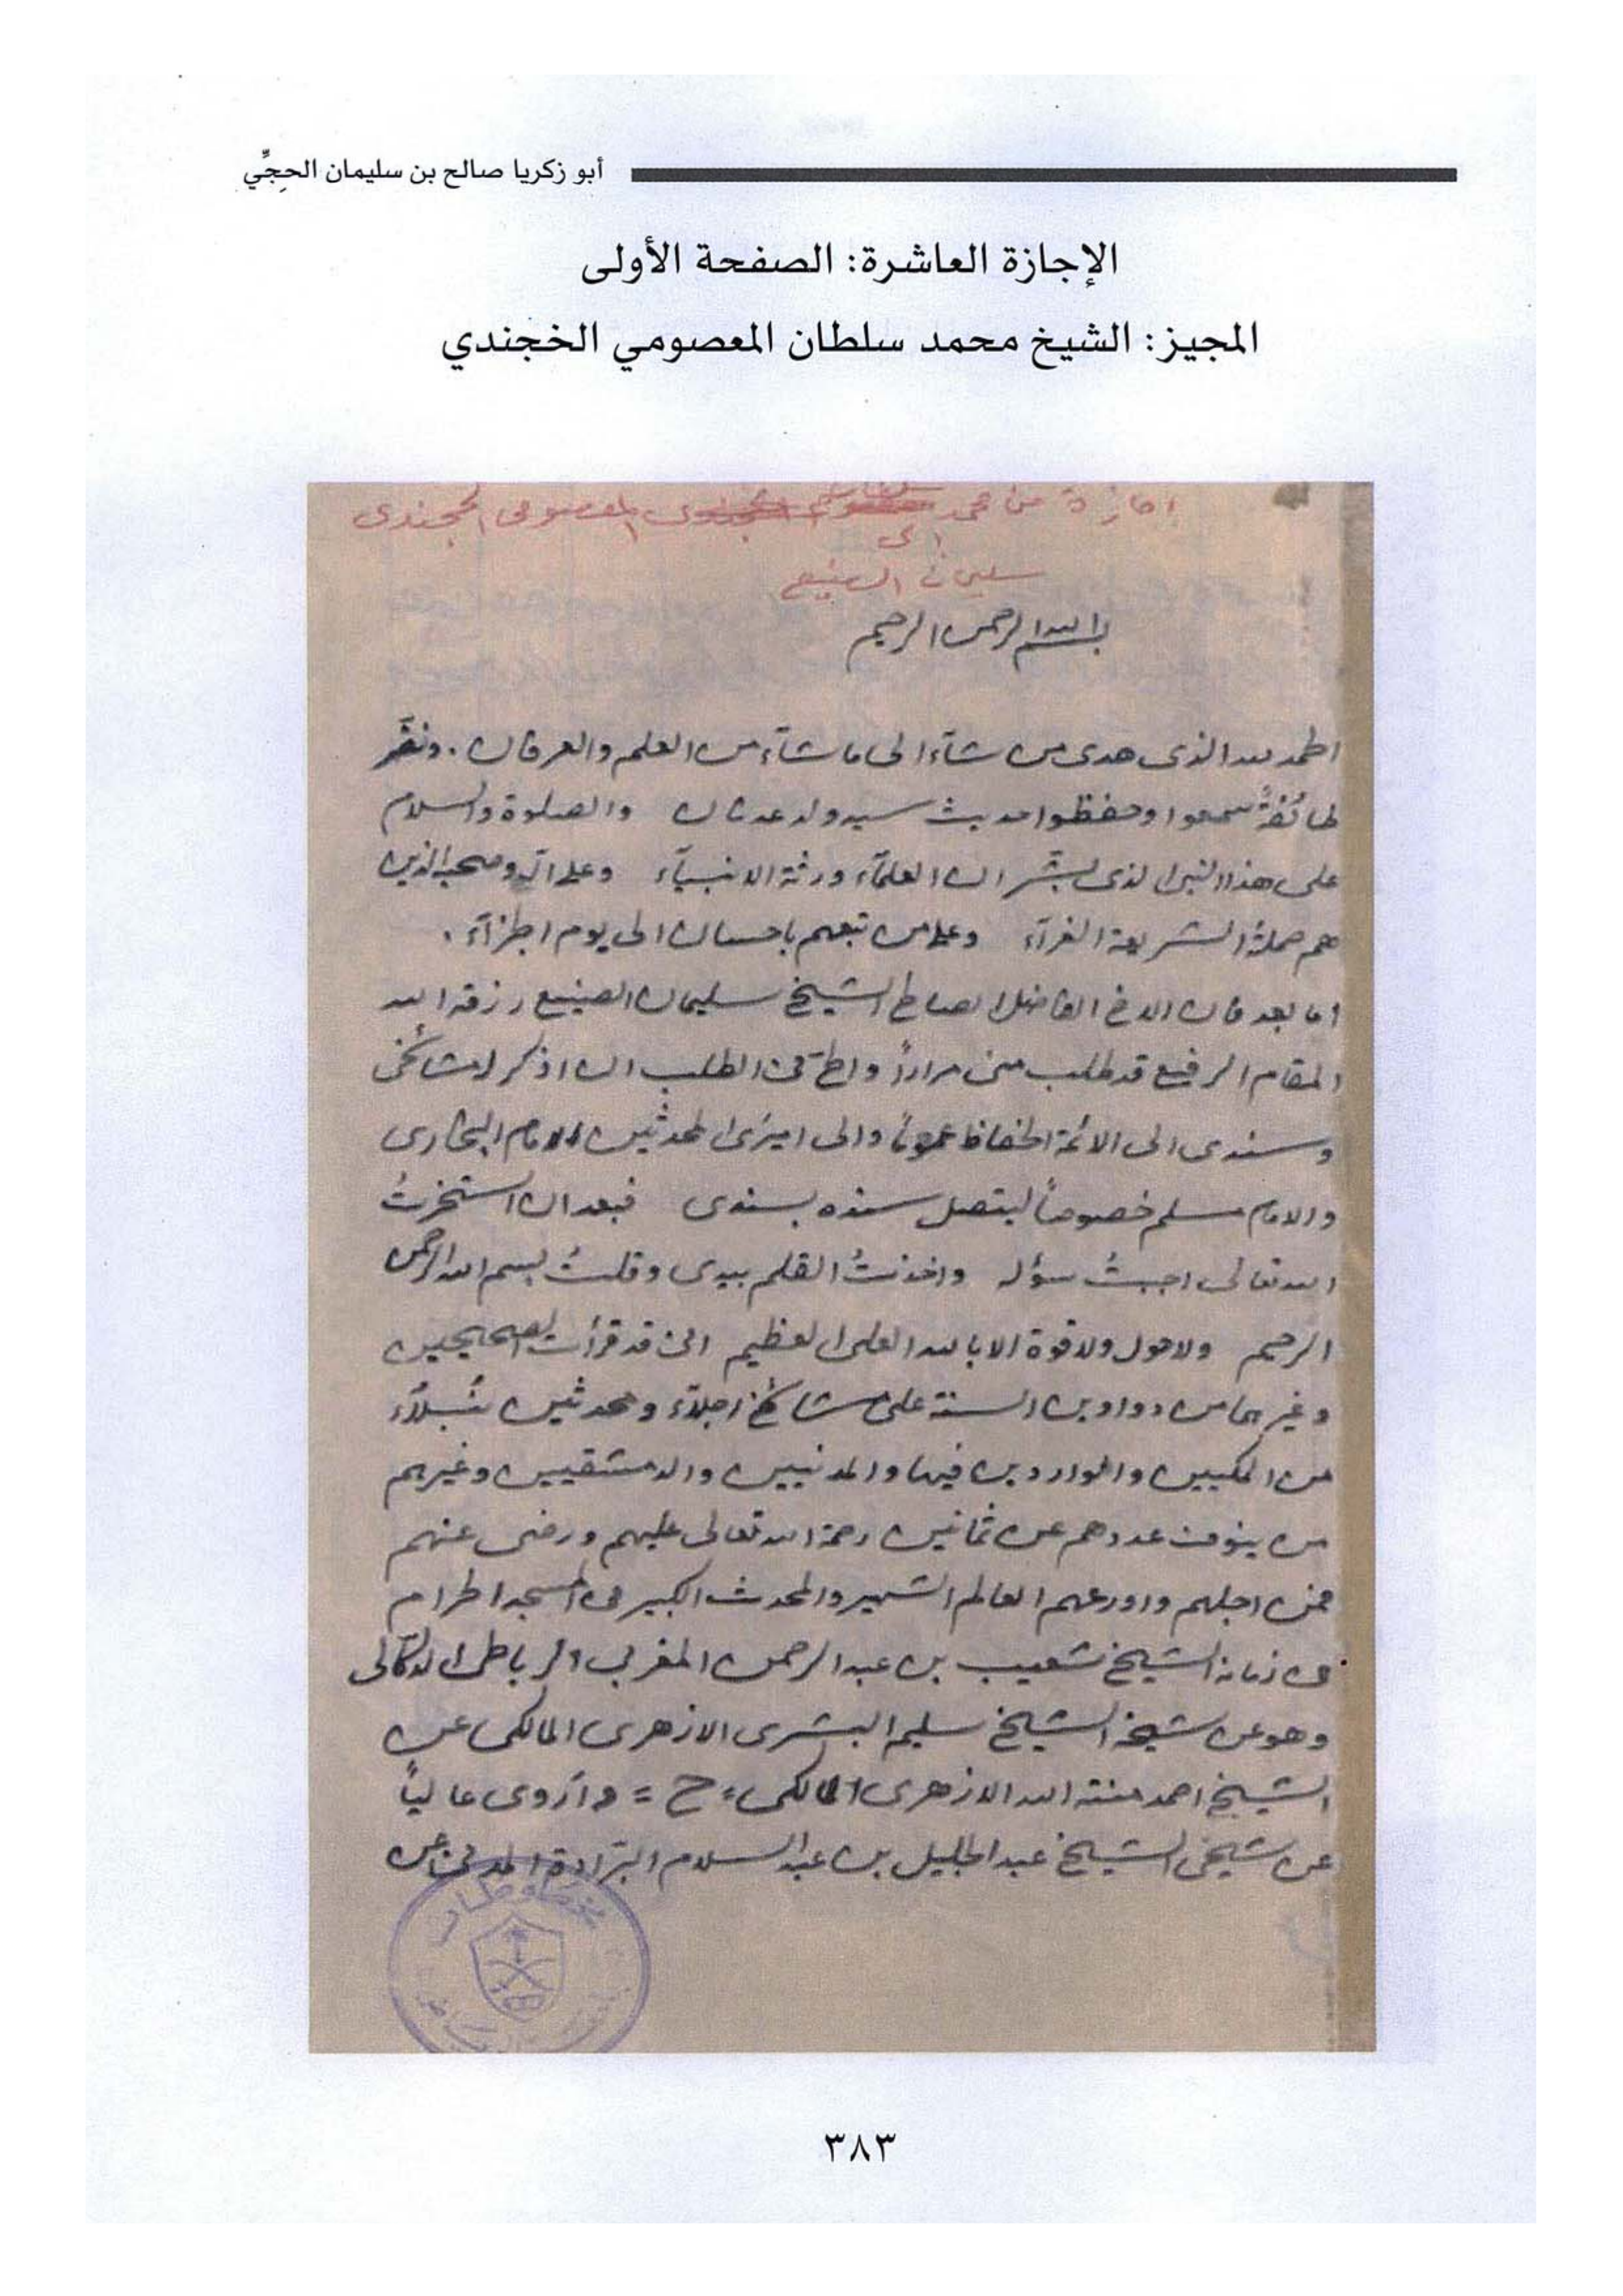 أبو زكريا صالح بن سليمان الحجِّي
الإجازة العاشرة: الصفحة الأولى
المجيز: الشيخ محمد سلطان المعصومي الخجندي
اجازة من محمد سلطان المعصومى الخجندى
الى
سليمان الصنيع
بسم الله الرحمن الرحيم
الحمد لله الذى هدى من شآء الى ما شآء من العلم والعرفان . ونضّر
طائفةً سمعوا وحفظوا حديث سيد ولد عدنان والصلوة والسلام
على هذا النبى الذى بشّر ان العلمآء ورثة الانبيآء وعلى آله وصحبه الذين
هم حملة الشريعة الغرآء وعلى من تبعهم باحسان الى يوم الجزآء .
اما بعد فان الاخ الفاضل الصالح الشيخ سليمان الصنيع رزقه الله
المقام الرفيع قد طلب منى مراراً والحّ فى الطلب ان اذكر له مشائخى
وسندى الى الائمة الحفاظ عموماً والى اميرى المحدثين الامام البخارى
والامام مسلم خصوصاً ليتصل سنده بسندى فبعد ان استخرتُ
الله تعالى اجبتُ سؤله واخذتُ القلم بيدى وقلتُ بسم الله الرحمن
الرحيم ولا حول ولا قوة الا بالله العلى العظيم انى قد قرأت الصحيحين
وغيرهما من دواوين السنة على مشائخ اجلآء ومحدثين نُبلآء
من المكيين والواردين فيها والمدنيين والدمشقيين وغيرهم
من ينوف عددهم عن ثمانين رحمة الله تعالى عليهم ورضى عنهم
فمن اجلهم واورعهم العالم الشهير والمحدث الكبير فى المسجد الحرام
فى زمانه الشيخ شعيب بن عبد الرحمن المغربى الرباطى الدكالى
وهو عن شيخه الشيخ سليم البشرى الازهرى المالكى عن
الشيخ احمد منة الله الازهرى المالكى = ح = وأروى عالياً
عن شيخى الشيخ عبد الجليل بن عبد السلام البرّادة المدنى عن
مخطوطات
٣٨٣